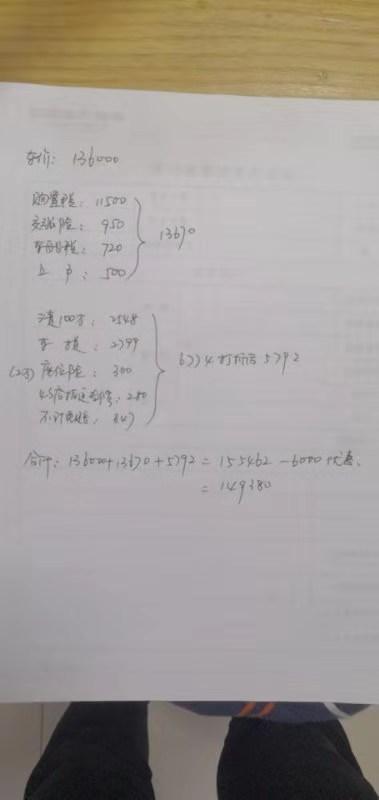 车价: 136000
购置税: 11500
交强险: 950
车船税: 720
上户: 500
13670
三责100万: 2548
车损: 2799
(2万) 座位险: 300
不计免赔: 847
打折后 5792
合计: 136000+13670+5792 = 155462 -6000优惠.
= 149380